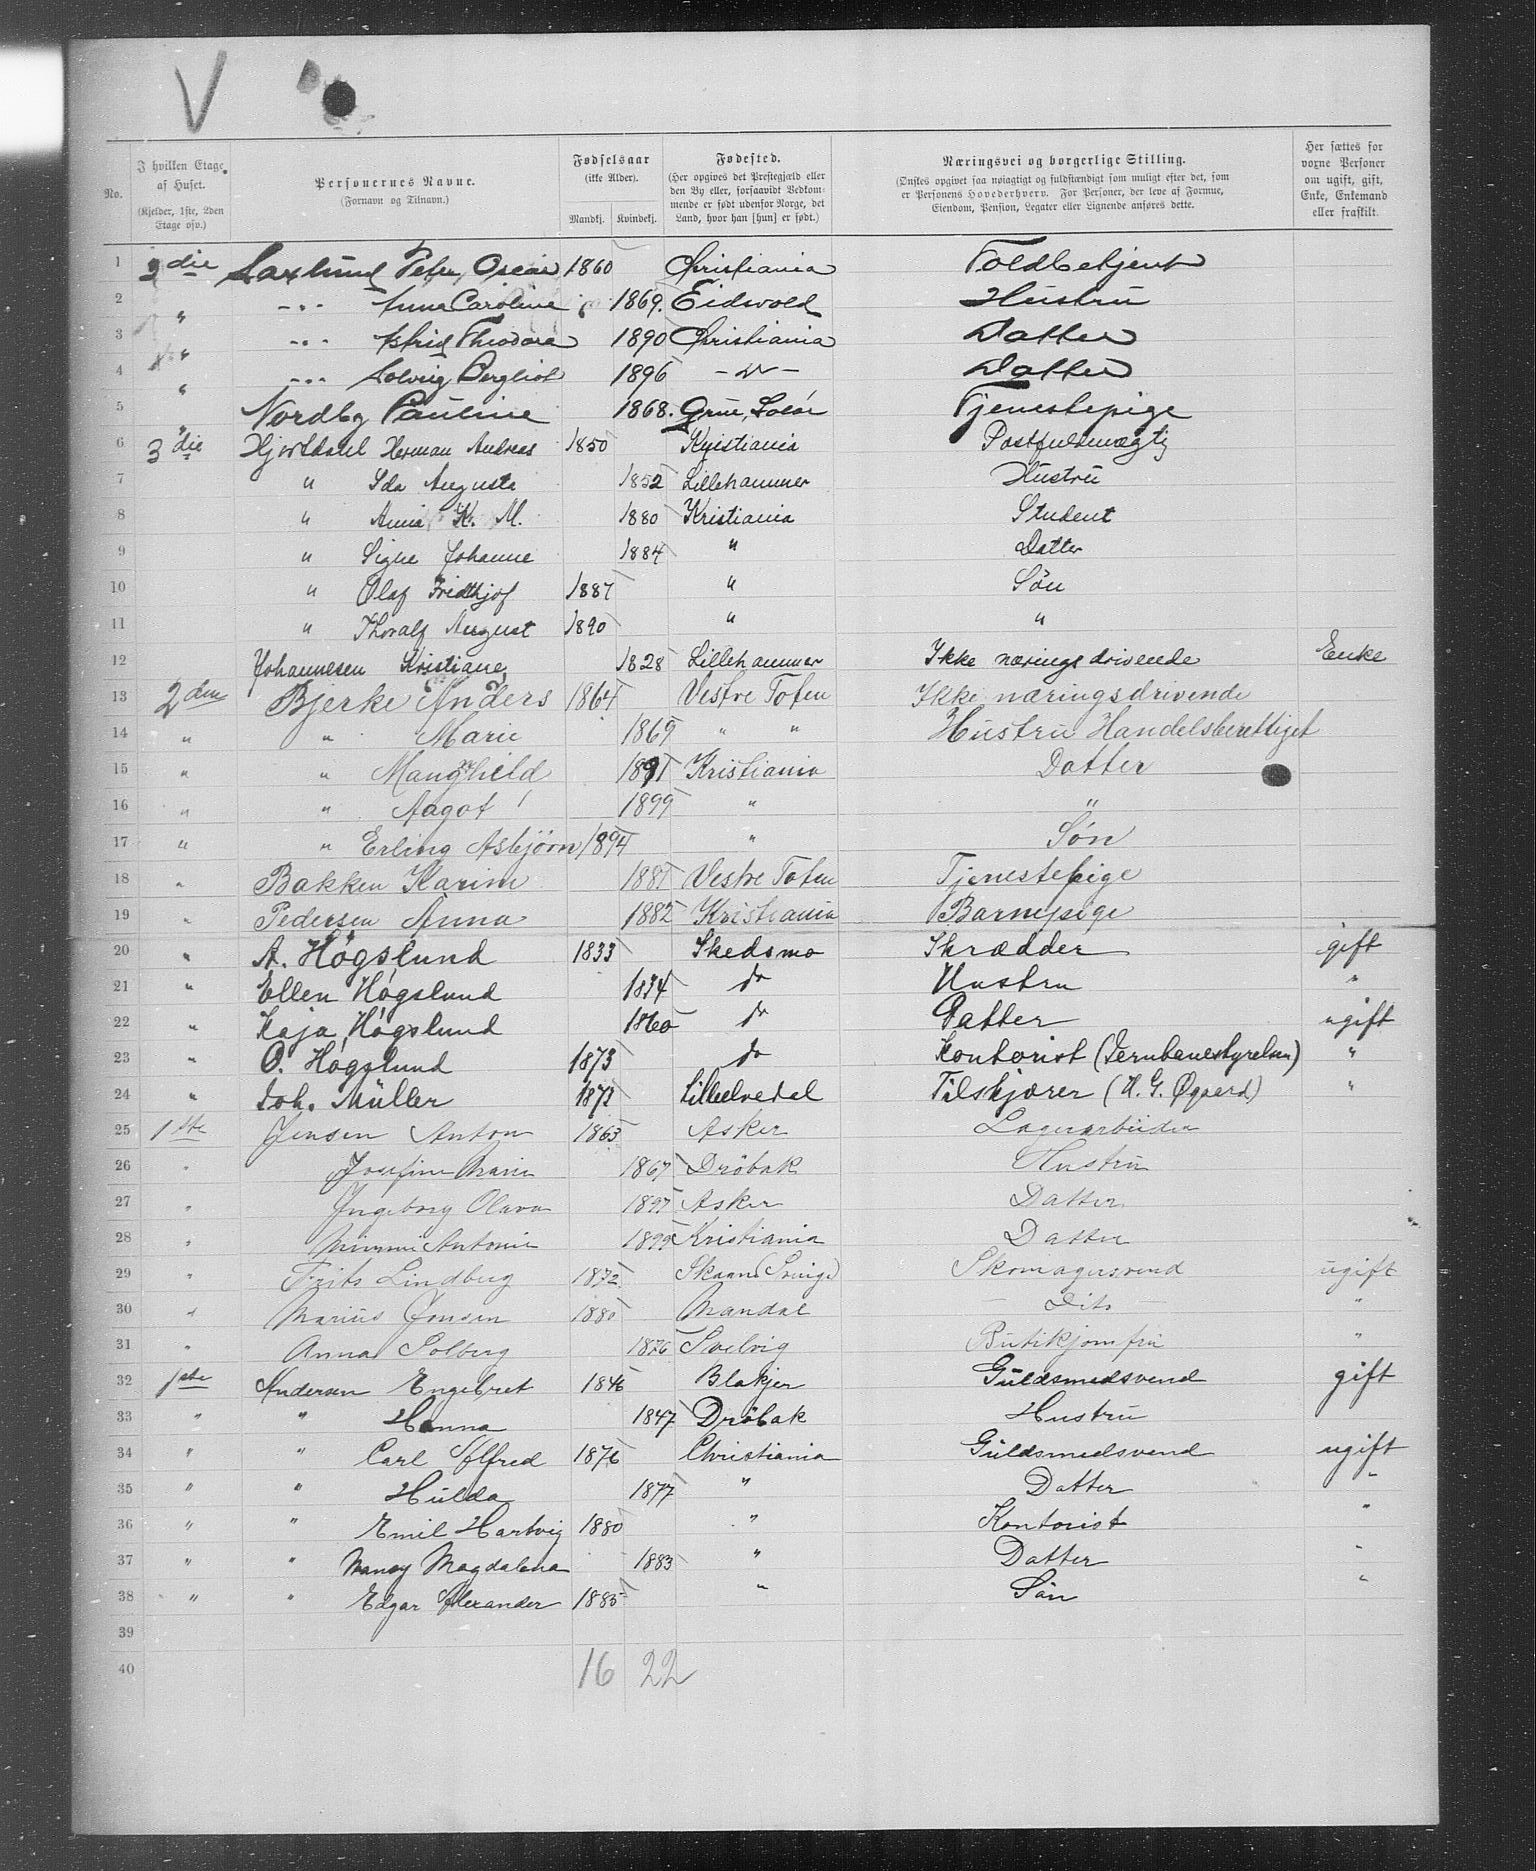 V
No. | I hvilken Etage af Huset. (Kjelder, 1ste, 2den Etage osv.) | Personernes Navne. (Fornavn og Tilnavn.) | Fødselsaar (ikke Alder). Mandkj. | Kvindekj. | Fødested. (Her opgives det Prestegjæld eller den By eller, forsaavidt Vedkommende er født udenfor Norge, det Land, hvor han [hun] er født.) | Næringsvei og borgerlige Stilling. (Ønskes opgivet saa nøiagtigt og fuldstændigt som muligt efter det, som er Personens Hovederhverv. For Personer, der leve af Formue, Eiendom, Pension, Legater eller Lignende anføres dette. | Her sættes for voxne Personer om ugift, gift, Enke, Enkemand eller fraskilt.
1 3die Saxlund Peter Oscar 1860 Christiania Toldbetjent
2 " -"- Anna Caroline 1869. Eidsvold Hustru
3 " -"- Astrid Theodora 1890 Christiania Datter
4 " -"- Solveig Bergliot 1896 -"- Datter
5 " Nordby Pauline 1868. Grue, Solør Tjenestepige
6 3die Hjortdahl Herman Andreas 1850 Kristiania Postfuldmægtig
7 " Ida Augusta 1852 Lillehammer Hustru
8 " Anna K. M. 1880 Kristiania Student
9 " Signe Johanne 1884 " Datter
10 " Olaf Fridthjof 1887 " Søn
11 " Thoralf August 1890 " "
12 Johannesen Kristiane 1828 Lillehammer Ikke næringsdrivende Enke
13 2den Bjerke Anders 1864 Vestre Toten Ikke næringsdrivende
14 " " Marie 1869 " " Hustru Handelsberettiget
15 " " Manghild 1891 Kristiania Datter
16 " " Aagot 1899 " "
17 " " Erling Asbjørn 1894 " Søn
18 " Bakken Karine 1881 Vestre Toten Tjenestepige
19 " Pedersen Anna 1882 Kristiania Barnepige
20 " A. Høgslund 1833 Skedsmo Skrædder gift
21 " Ellen Høgslund 1834 do Hustru "
22 " Kaja Høgslund 1860 do Datter ugift
23 " O. Høgslund 1873 do Kontorist (Jernbanestyrelsen) "
24 " Joh. Müller 1873 Lilleelvedal Tilskjærer (H. G. Øgaard) "
25 1ste Jensen Anton 1863 Asker Lagerarbeider
26 " Josefine Marie 1867 Drøbak Hustru
27 " Ingeborg Olava 1897 Asker Datter
28 " Mimmi Antonie 1899 Kristiania Datter
29 " Frits Lindberg 1872 Skaane Sverige Skomagersvend ugift
30 " Marius Jonsen 1880 Mandal - Dito - "
31 " Anna Solberg 1876 Svelvig Butikjomfru "
32 1ste Andersen Engebret 1846 Blakjer Guldsmedsvend gift
33 " " Hanna 1847 Drøbak Hustru
34 " " Carl Alfred 1876 Christiania Guldsmedsvend ugift
35 " " Hulda 1877 " Datter "
36 " " Emil Hartvig 1880 " Kontorist "
37 " " Nancy Magdalena 1883 " Datter "
38 " " Edgar Alexander 1885 " Søn "
39
40
16 22